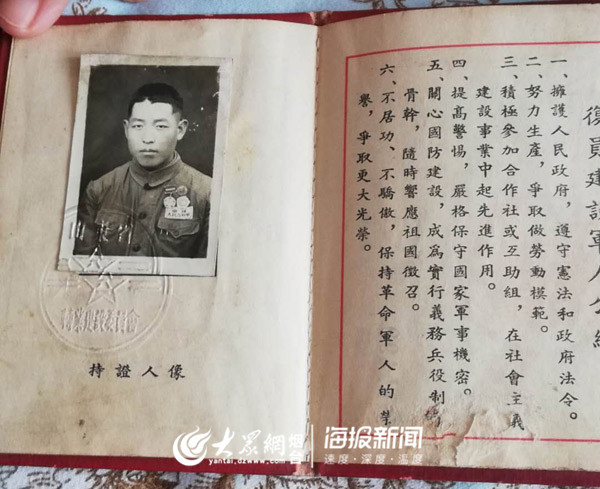 山東省
持證人像
復員建設軍人公約
一、擁護人民政府，遵守憲法和政府法令。
二、努力生產，爭取做勞動模範。
三、積極參加合作社或互助組，在社會主義
建設事業中起先進作用。
四、提高警惕，嚴格保守國家軍事機密。
五、關心國防建設，成為實行義務兵役制的
骨幹，隨時響應祖國徵召。
六、不居功、不驕傲，保持革命軍人的榮
譽，爭取更大光榮。
大眾網 烟台 海报新闻
yantai.dzwww.com 速度·深度·温度